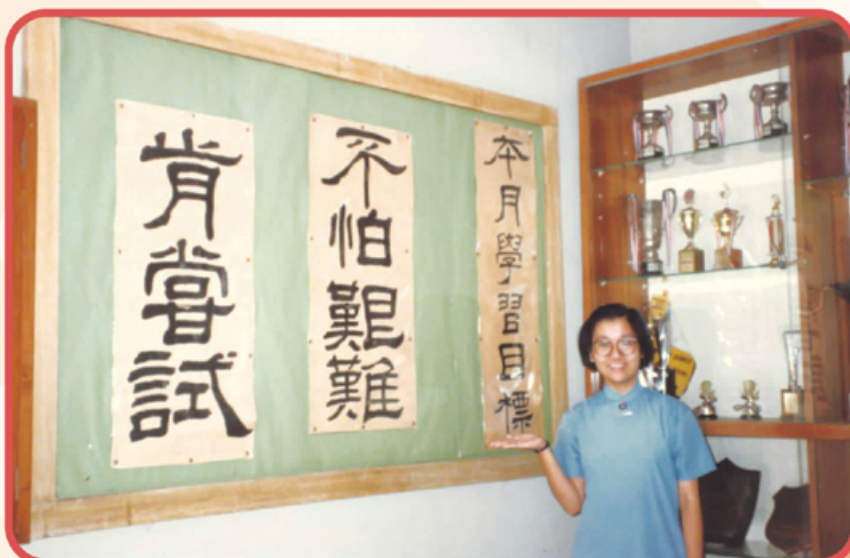 本月學習目標
不怕艱難
肯嘗試